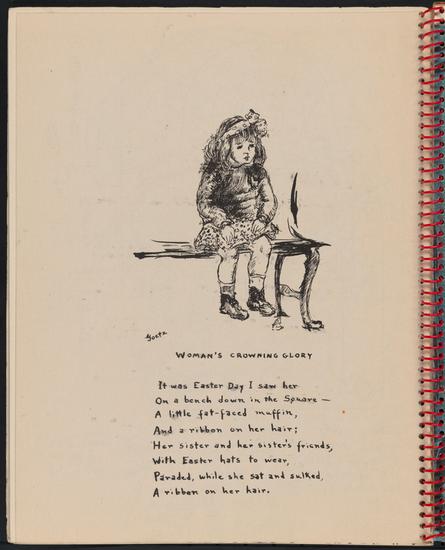 Goetz
WOMAN'S CROWNING GLORY
It was Easter Day I saw her
On a bench down in the Square —
A little fat-faced muffin,
And a ribbon on her hair;
Her sister and her sister's friends,
With Easter hats to wear,
Paraded, while she sat and sulked,
A ribbon on her hair.